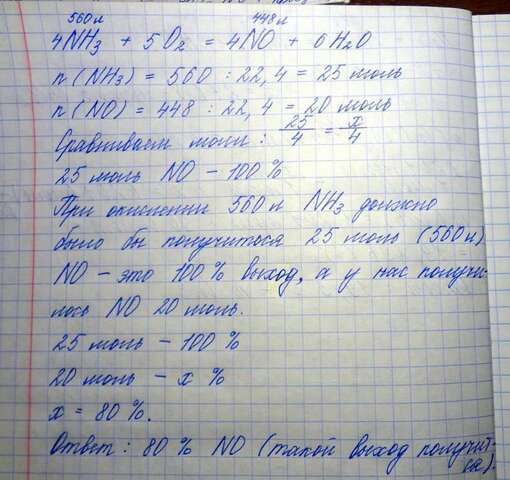 560 л 448 л
4NH3 + 5O2 = 4NO + 6H2O
n(NH3) = 560 : 22,4 = 25 моль
n(NO) = 448 : 22,4 = 20 моль
Сравниваем моли: 25/4 = x/4
25 моль NO – 100 %
При окислении 560 л NH3 должно
было бы получиться 25 моль (560 л)
NO – это 100 % выход, а у нас получи-
лось NO 20 моль.
25 моль – 100 %
20 моль – x %
x = 80 %.
Ответ: 80 % NO (такой выход получит-
ся).